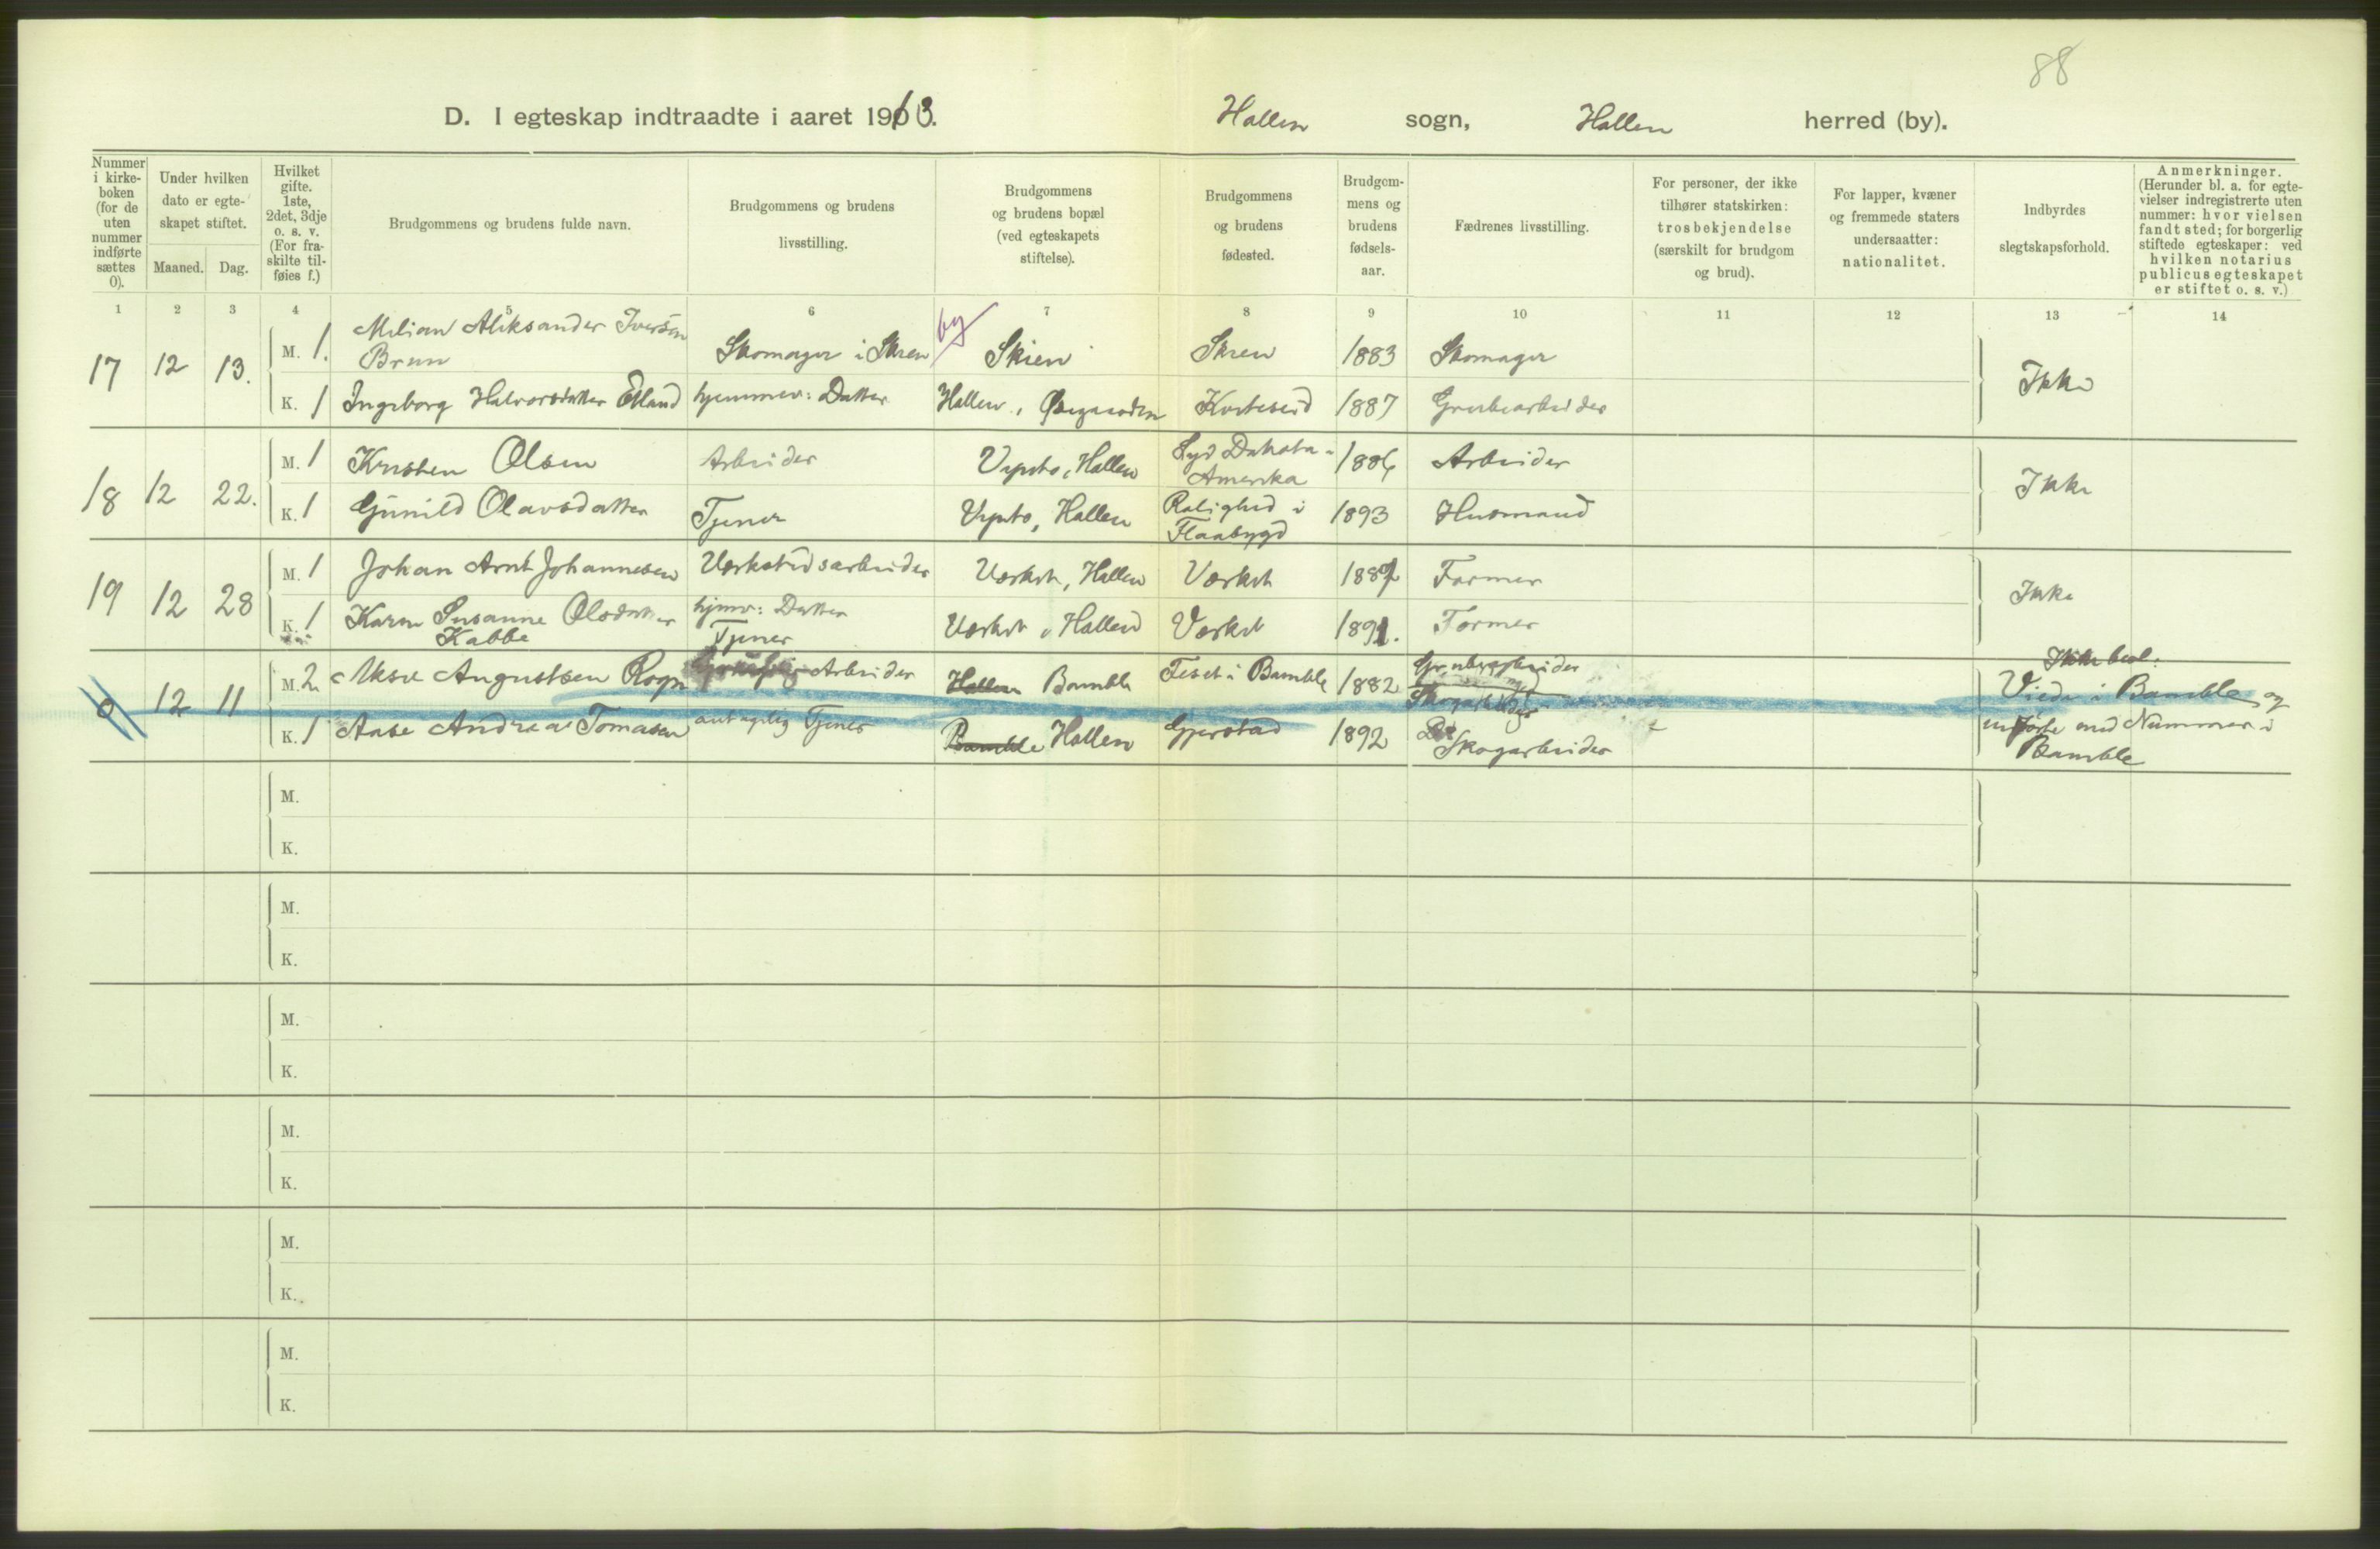 88
D. I egteskap indtraadte i aaret 1913.
Hollen sogn, Hollen herred (by).
Nummer i kirke-boken (for de uten nummer indførte sættes 0).
Under hvilken dato er egte-skapet stiftet.
Maaned. Dag.
Hvilket gifte. 1ste, 2det, 3dje o. s. v. (For fra-skilte til-føies f.)
Brudgommens og brudens fulde navn.
Brudgommens og brudens livsstilling.
Brudgommens og brudens bopæl (ved egteskapets stiftelse).
Brudgommens og brudens fødested.
Brudgom-mens og brudens fødsels-aar.
Fædrenes livsstilling.
For personer, der ikke tilhører statskirken: trosbekjendelse (særskilt for brudgom og brud).
For lapper, kvæner og fremmede staters undersaatter: nationalitet.
Indbyrdes slegtskapsforhold.
Anmerkninger. (Herunder bl. a. for egte-vielser indregistrerte uten nummer: hvor vielsen fandt sted; for borgerlig stiftede egteskaper: ved hvilken notarius publicus egteskapet er stiftet o. s. v.)
1 2 3 4 5 6 7 8 9 10 11 12 13 14
17 12 13. M. 1. Milian Aleksander Iversen Brun Skomager i Skien by Skien Skien 1883 Skomager Ikke
K. 1 Ingeborg Halvorsdatter Esland hjemmev: Datter Hollen, 1887 Grubearbeider
18 12 22. M. 1 Kristen Olsen Arbeider Hollen Syd Dakota i Amerika 1886 Arbeider Ikke
K. 1 Gunild Olavsdatter Tjener Hollen Flaabygd 1893 Husmand
19 12 28 M. 1 Johan Arnt Johannesen Verkstedsarbeider Verket, Hollen Verket 1887 Former Ikke
K. 1 Karen Susanne Olsdatter Kabbe hjmv: Datter Tjener Verket, Hollen Verket 1891. Former
0 12 11 M. 2 Aksel Augustsen Rogn Arbeider Hollen Bamble i Bamble 1882 Grubearbeider Skogarbeider Ikke besl. Viede i Bamble og
K. 1 Aase Andrea Tomasen antagelig Tjener Bamble Hollen Gjerstad 1892 Skogarbeider indførte med Nummer i Bamble
M.
K.
M.
K.
M.
K.
M.
K.
M.
K.
M.
K.